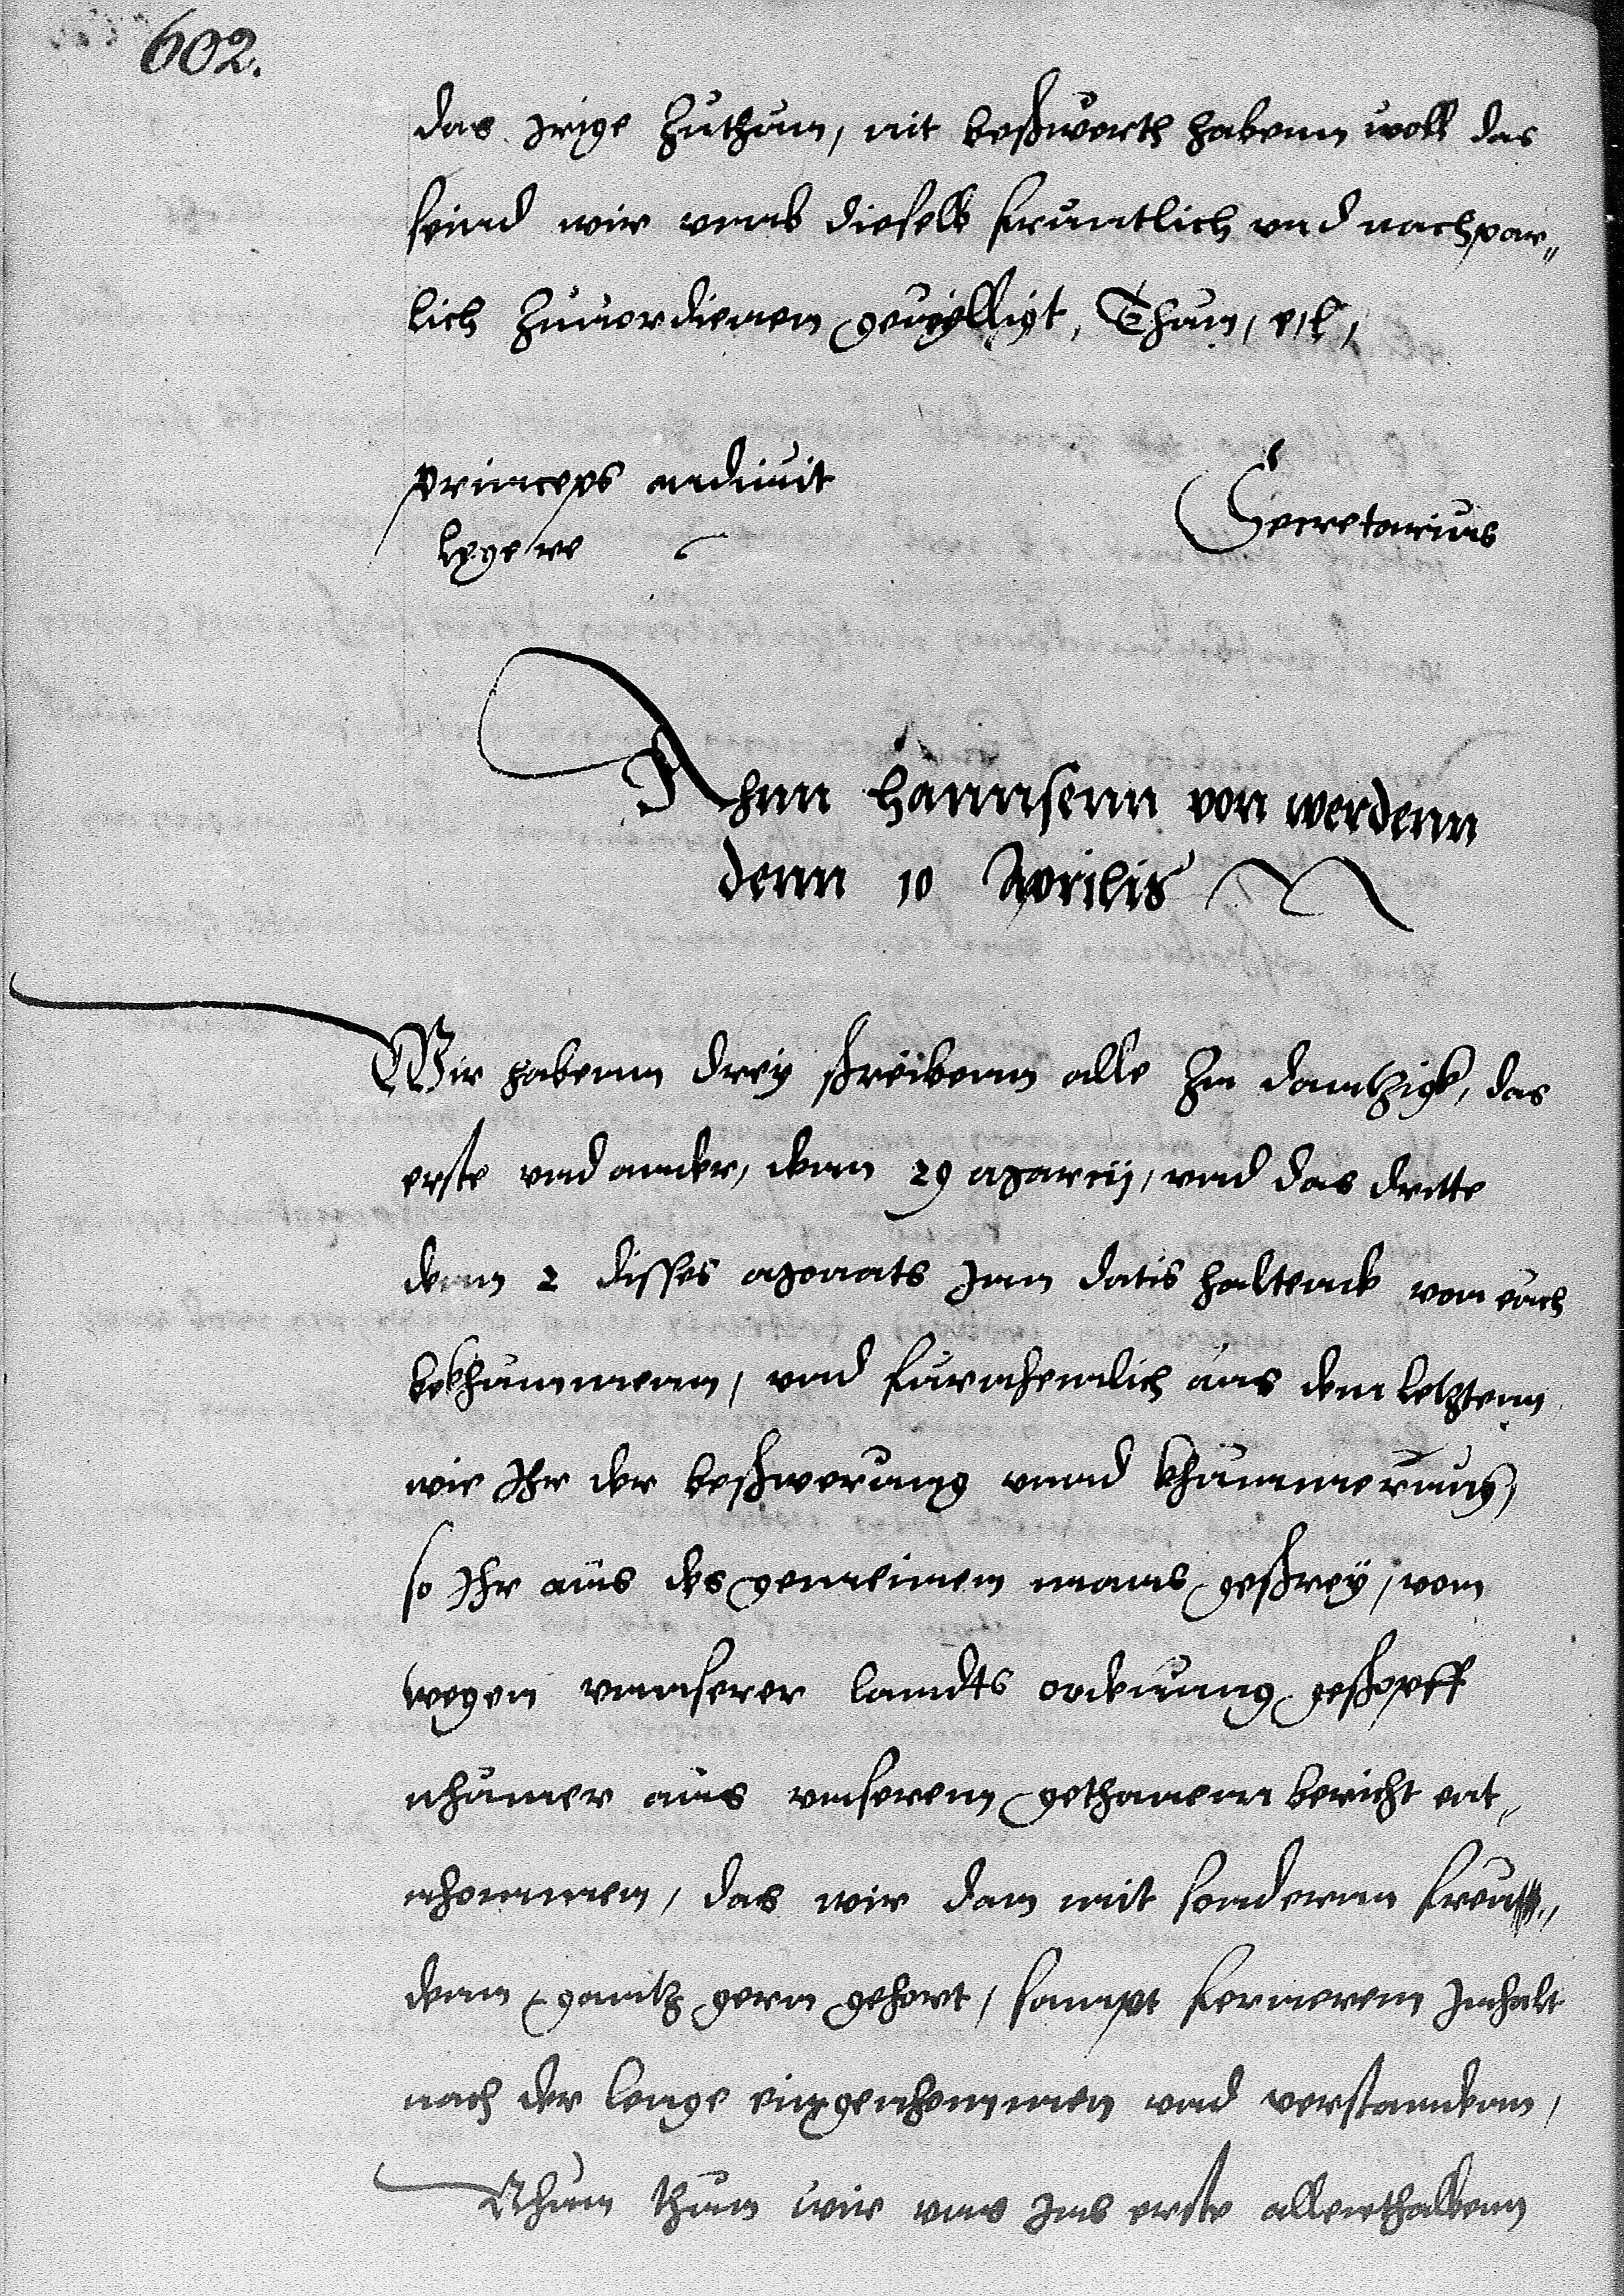 602.
das irige Zuthun, nit beschwerth habenn woll das
seind wir vmb dieselb freuntlich vnd nachpar„
lich zuuordienen gewilligt, Thun, etc,
princeps audiuit
legere
Secretarius
Ahnn Hannsenn von werdenn
denn 10 Aprilis
Wir habenn drey schreibenn alle zu dantzigk, das
erste vnd ander, denn 29 Marcij, vnd das dritte
denn 2 disses Monats Inn datis haltend von euch
bekhummenn, vnd furnhemlich aus dem letztenn
wie Ihr der beschwerung vnnd khummerung,
so Ihr aus des gemeinen mans geschrey, von
wegen vnnserer landts ordenung geschopfft
nhumer aus vnserem gethanenn bericht ent„
nhommen, das wir dan mit sonderenn freu„
denn gantz gern gehort, sampt fernerem Inhalt
nach der lenge eingenhommen vnd verstandenn,
Nhun thun wir vns Ins erste allenthalbenn